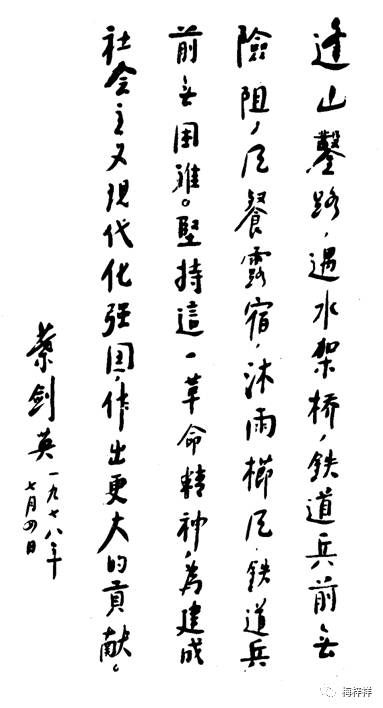 逢山鑿路，遇水架桥，鉄道兵前无
險阻，风餐露宿，沐雨櫛风，鉄道兵
前无困难。堅持這一革命精神，為建成
社会主义現代化强国，作出更大的貢献。
葉剑英一九七八年
七月四日
梅梓祥